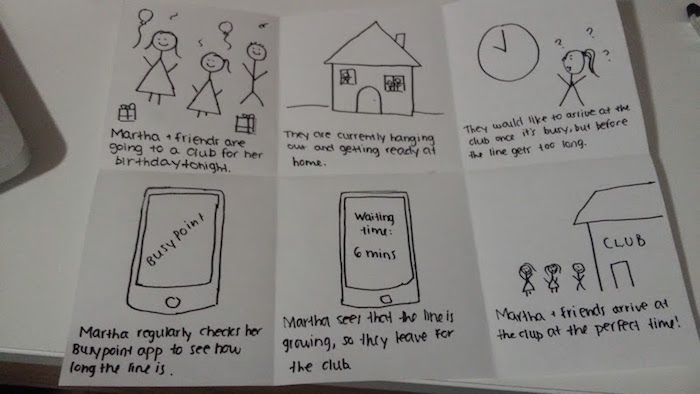 Martha + friends are
going to a club for her
birthday tonight.
They are currently hanging
out and getting ready at
home.
? ? ?
They would like to arrive at the
club once it's busy, but before
the line gets too long.
BusyPoint
Martha regularly checks her
Busypoint app to see how
long the line is.
Waiting
time:
6 mins
Martha sees that the line is
growing, so they leave for
the club
CLUB
Martha + friends arrive at
the club at the perfect time!